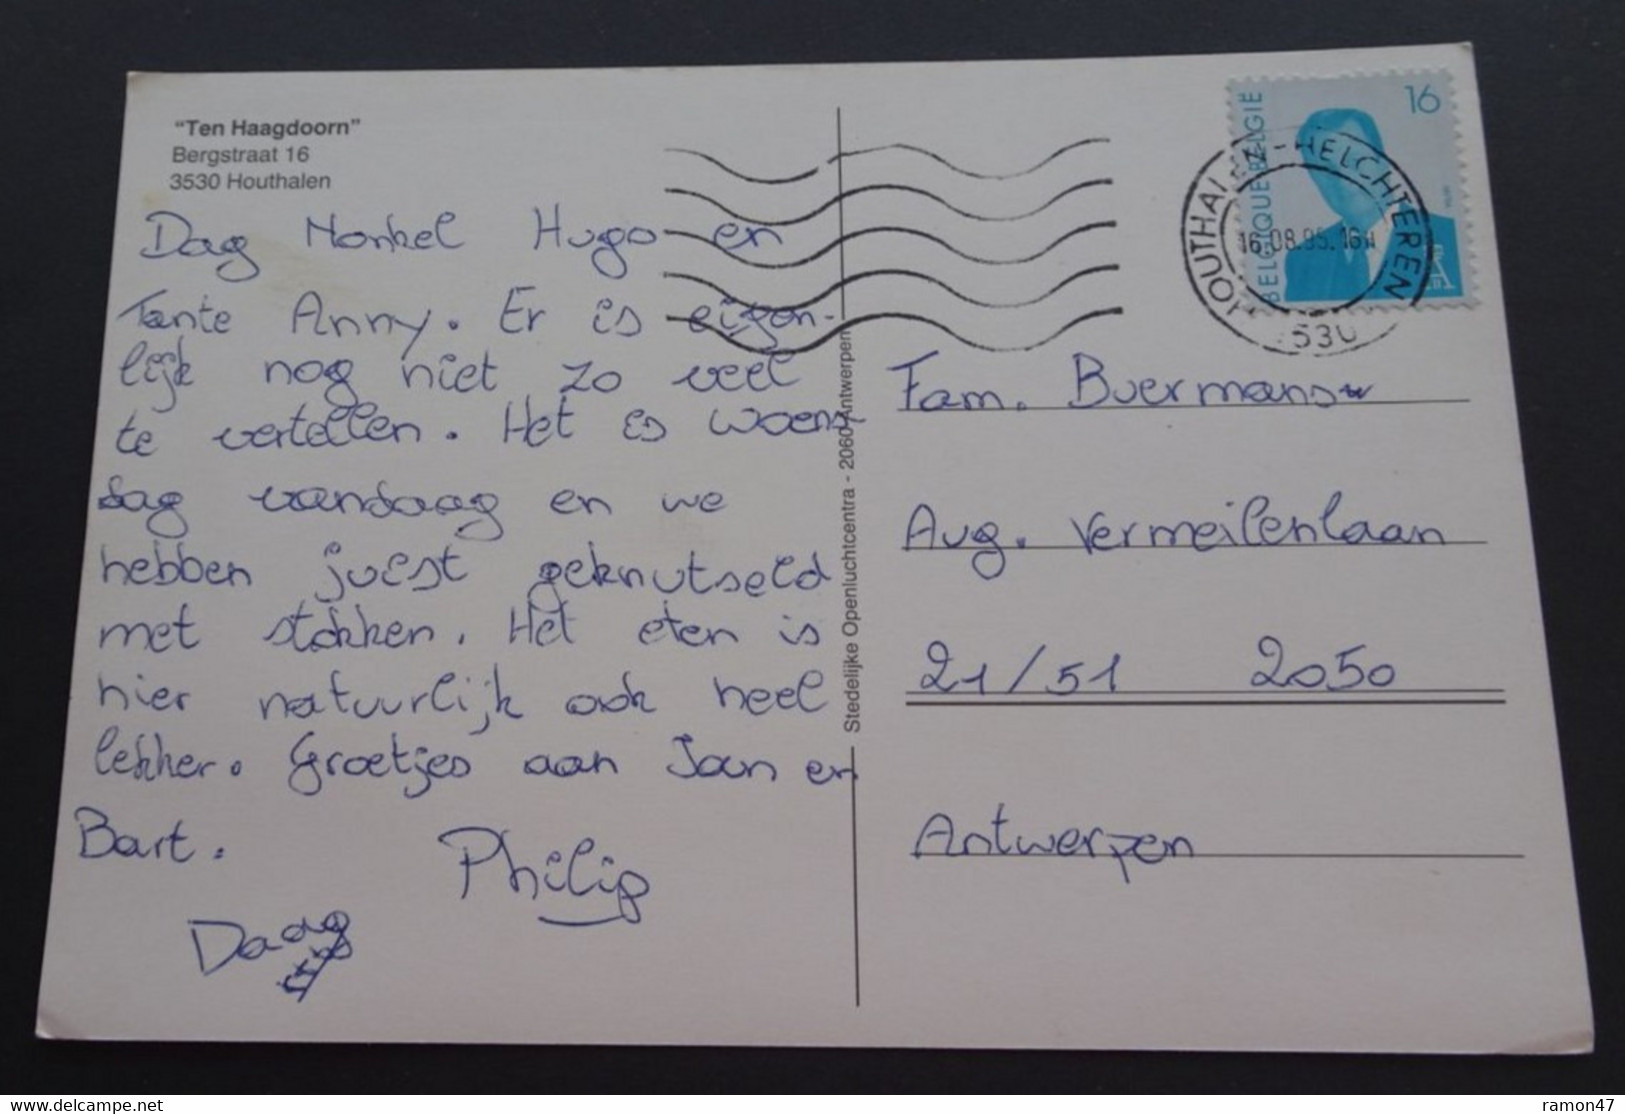 "Ten Haagdoorn"
Bergstraat 16
3530 Houthalen
Dag Nonkel Hugo en
Tante Anny. Er is eigen-
lijk nog niet zo veel
te vertellen. Het is woens-
dag vandaag en we
hebben juist geknutseld
met stokken. Het eten is
hier natuurlijk ook heel
lekker. Groetjes aan Joan en
Bart.
Philip
Daag
Stedelijke Openluchtcentra - 2060 Antwerpen
BELGIQUE BELGIË
16
HOUTHALEN-HELCHTEREN
16.08.95.16
3530
Fam. Buermans
Aug. Vermeilenlaan
21/51 2050
Antwerpen
delcampe.net
ramon47